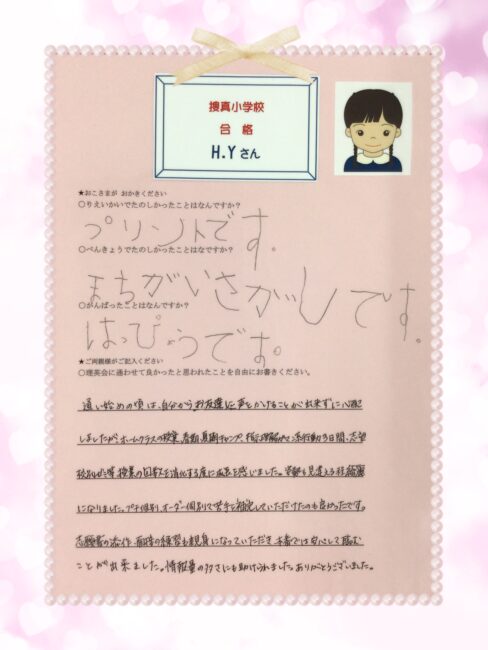 捜真小学校
合格
H.Yさん
★おこさまが おかきください
○りえいかいでたのしかったことはなんですか？
プリントです。
○べんきょうでたのしかったことはなですか？
まちがいさがしです。
○がんばったことはなんですか？
はっぴょうです。
★ご両親様がご記入ください
○理英会に通わせて良かったと思われたことを自由にお書きください。
通い始めの頃は、自分からお友達に声をかけることが出来ずに心配
しましたが、ホームクラスの授業、春期、夏期 行動3日間、志望
校別 等 授業の回数を消化する度に成長を感じました。姿勢も見違える程綺麗
になりました。プチ個別、オーダー個別で苦手を補完していただけたのも良かったです。
志願書の添作、面接の練習も親身になっていただき、本番では安心して臨む
ことが出来ました。情報量の多さにも助けられました。ありがとうございました。